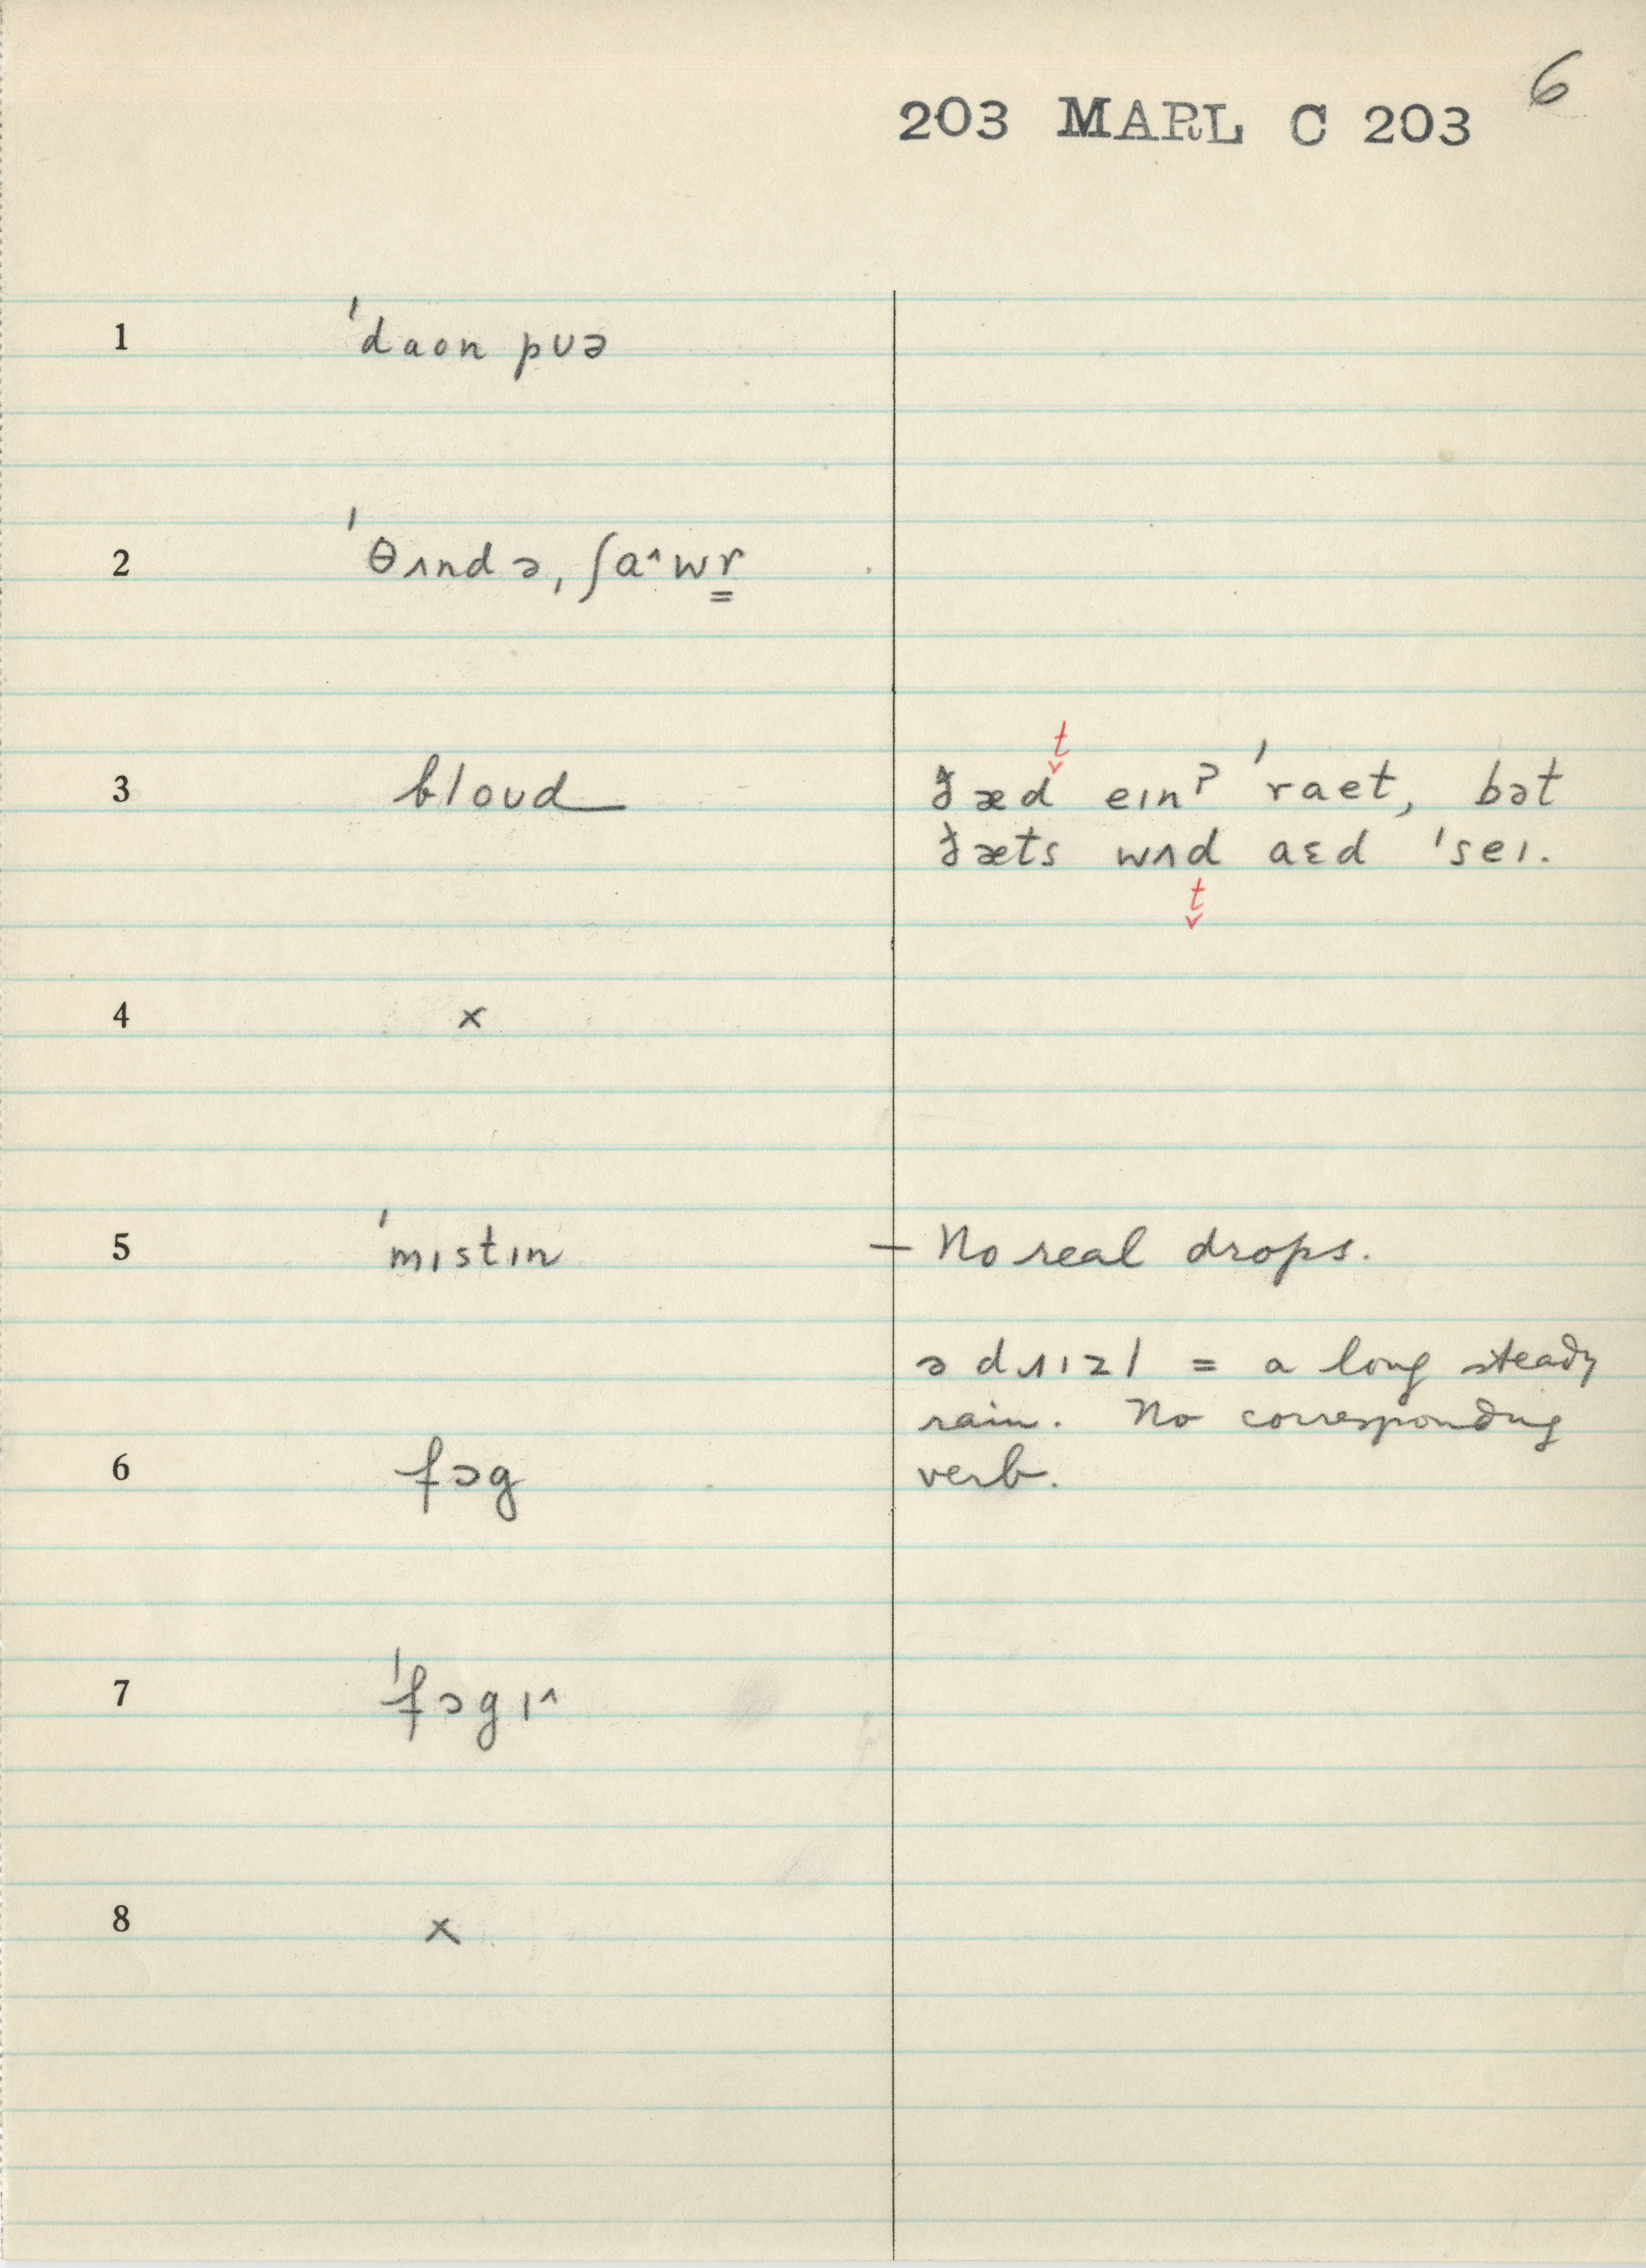 6
203 MARL C 203
1 ˈdaon pʊə
2 ˈθʌndə, ʃaˆwr̳
3 bloʊd
t
ðæd eɪnʔ ˈraet, bət
ðæts wʌd aɛd ˈseɪ.
t
4 ×
5 ˈmɪstɪn — No real drops.
ə dɹɪzl = a long steady
rain. No corresponding
6 fɔg verb.
7 ˈfɔgɪˆ
8 ×